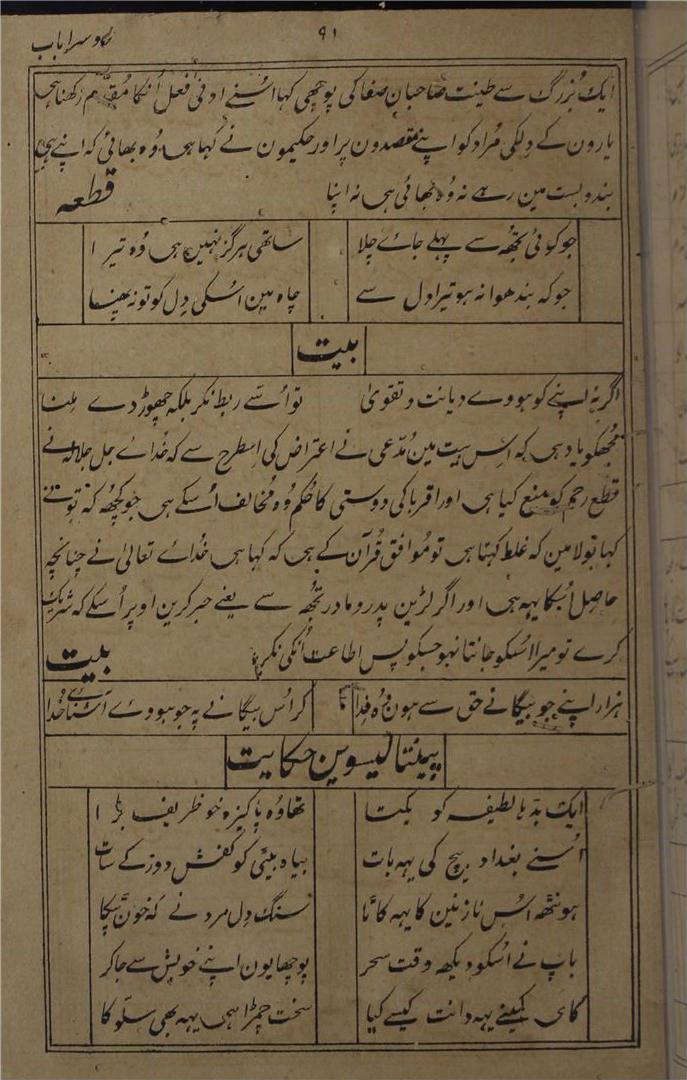 ۹۱
دوسرا باب
ایک بزرگ سے طینت صاحبان صفا کی پوچھی کہا اسنے ادنی فعل انکا مقدم رکھنا ہی
یارون کے دلکی مراد کو اپنے مقصدون پر اور حکیمون نے کہا ہی وہ بھائی کہ اپنے ہی
بندوبست مین رہے نہ وہ بھائی ہی نہ اپنا قطعہ
جو کوئی تجھ سے پہلے جائے چلا ساتھی ہرگز نہین ہی وہ تیرا
جو کہ بندھوا نہ ہو تیرا دل سے چاہ مین اسکی دل کو تو نہ پھنسا
بیت
اگر نہ اپنے کو ہووے دیانت و تقویٰ تو اسّے ربط نکر بلکہ چھوڑ دے ملنا
مجھکو یاد ہی کہ اس بیت مین مدعی نے اعتراض کی اسطرح سے کہ خداے جل جلالہ نے
قطع رحم کو منع کیا ہی اور اقربا کی دوستی کا حکم وہ مخالف اسکے ہی جو کچھ کہ تو نے
کہا بولا مین کہ غلط کہتا ہی تو موافق قرآن کے ہی کہ کہا ہی خداے تعالیٰ نے چنانچہ
حاصل اسکا یہہ ہی اور اگر لڑین پدر و مادر تجھ سے یعنے جبر کرین اوپر اسکے کہ شریک
کرے تو میرا اسکو جانتا نہو جسکو پس اطاعت انکی نکر بیت
ہزار اپنے جو بیگانے حق سے ہون وہ فدا کر اس بیگانے پہ جو ہووے آشناے خدا
پینتالیسوین حکایت
ایک بڈھا لطیفہ گو یکتا تھا وہ پاکیزہ خو ظریف بڑا
اسنے بغداد بیچ کی یہہ بات بیاہ بیٹی کو کفش دوز کے سات
ہونٹھ اس نازنین کا یہہ کاٹا سنگ دل مرد نے کہ خون ٹپکا
باپ نے اسکو دیکھ وقت سحر پوچھا یون اپنے خویش سے جا کر
کای کمینے یہہ دانت کیسے کیا سخت چمڑا ہی یہہ بھی سلّو کا